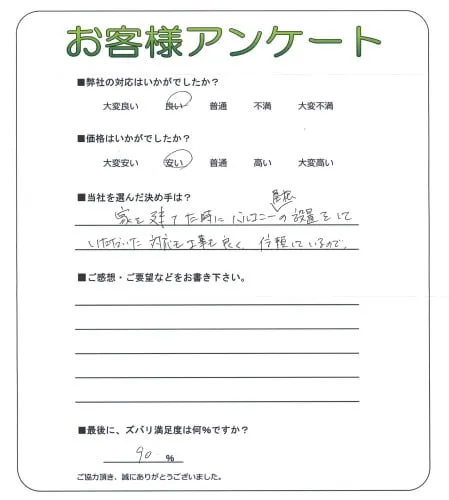 お客様アンケート
■弊社の対応はいかがでしたか？
大変良い 良い 普通 不満 大変不満
■価格はいかがでしたか？
大変安い 安い 普通 高い 大変高い
■当社を選んだ決め手は？
屋根
家を建てた時にバルコニーの設置をして
いただいた 対応も工事も良く、信頼しているので。
■ご感想・ご要望などをお書き下さい。
■最後に、ズバリ満足度は何％ですか？
90 ％
ご協力頂き、誠にありがとうございました。